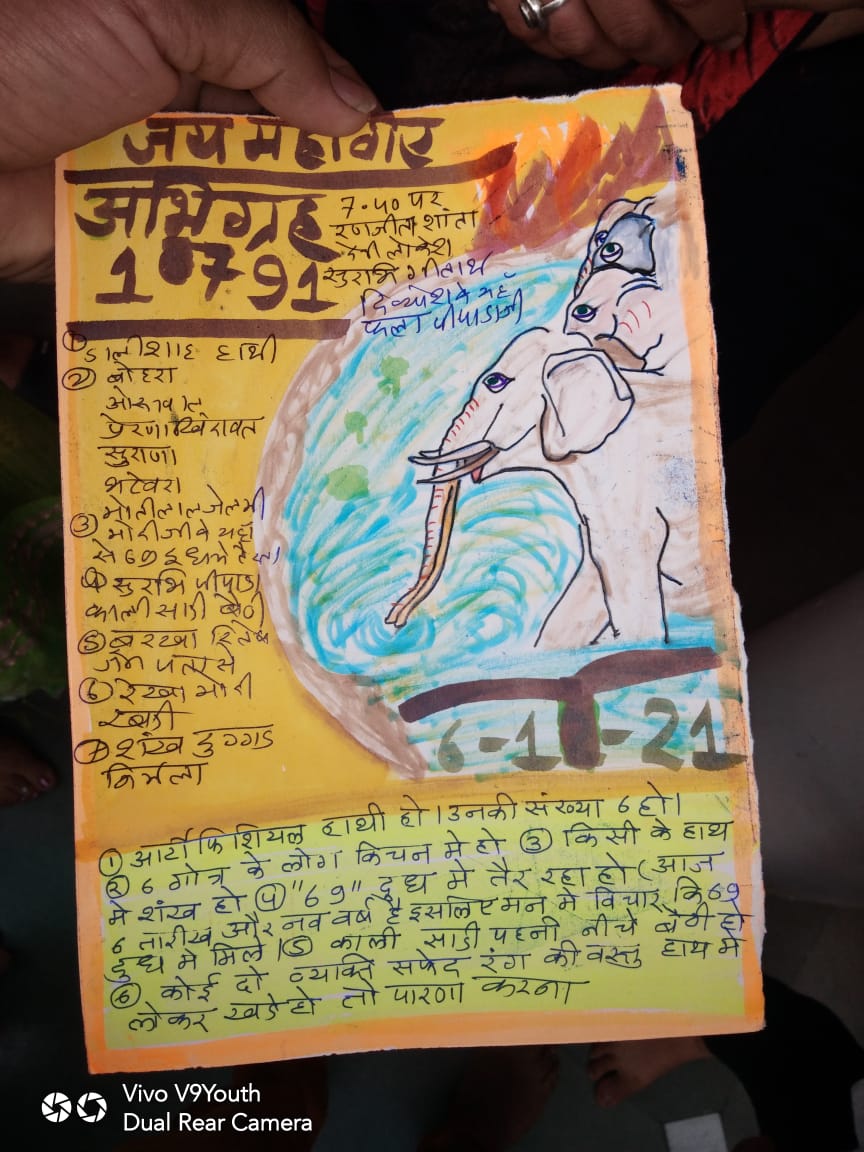 जय महावीर
अभिग्रह
10791
7.40 पर
रणजीता शांता
देवी लोकेश
सुरभि गीतार्थ
दिव्यांश के यहाँ
फला पीपाडाजी
① डालीशाह हाथी
② बोहरा
ओस्तवाल
प्रेरणा खिंरावत
सुराणा
भटेवरा
③ मोतीलाल जेलमी
मोदीजी के यहाँ
से 69 दूध में तैरता
④ सुरभि पीपाडा
काली साडी बैठी
⑤ बरखा रितेश
जैन
⑥ रेखा मोदी
रबडी
⑦ शंख डुग्गड
निर्मला
6-1-21
① आर्टीफिशियल हाथी हो। उनकी संख्या 6 हो।
② 6 गोत्र के लोग किचन मे हो ③ किसी के हाथ
मे शंख हो ④ "69" दुध मे तैर रहा हो (आज
6 तारीख और नव वर्ष है इसलिए मन मे विचार कि 69
दुध मे मिले। ⑤ काली साडी पहनी नीचे बैठी हो
⑥ कोई दो व्यक्ति सफेद रंग की वस्तु हाथ मे
लेकर खडे हो तो पारणा करना
Vivo V9Youth
Dual Rear Camera